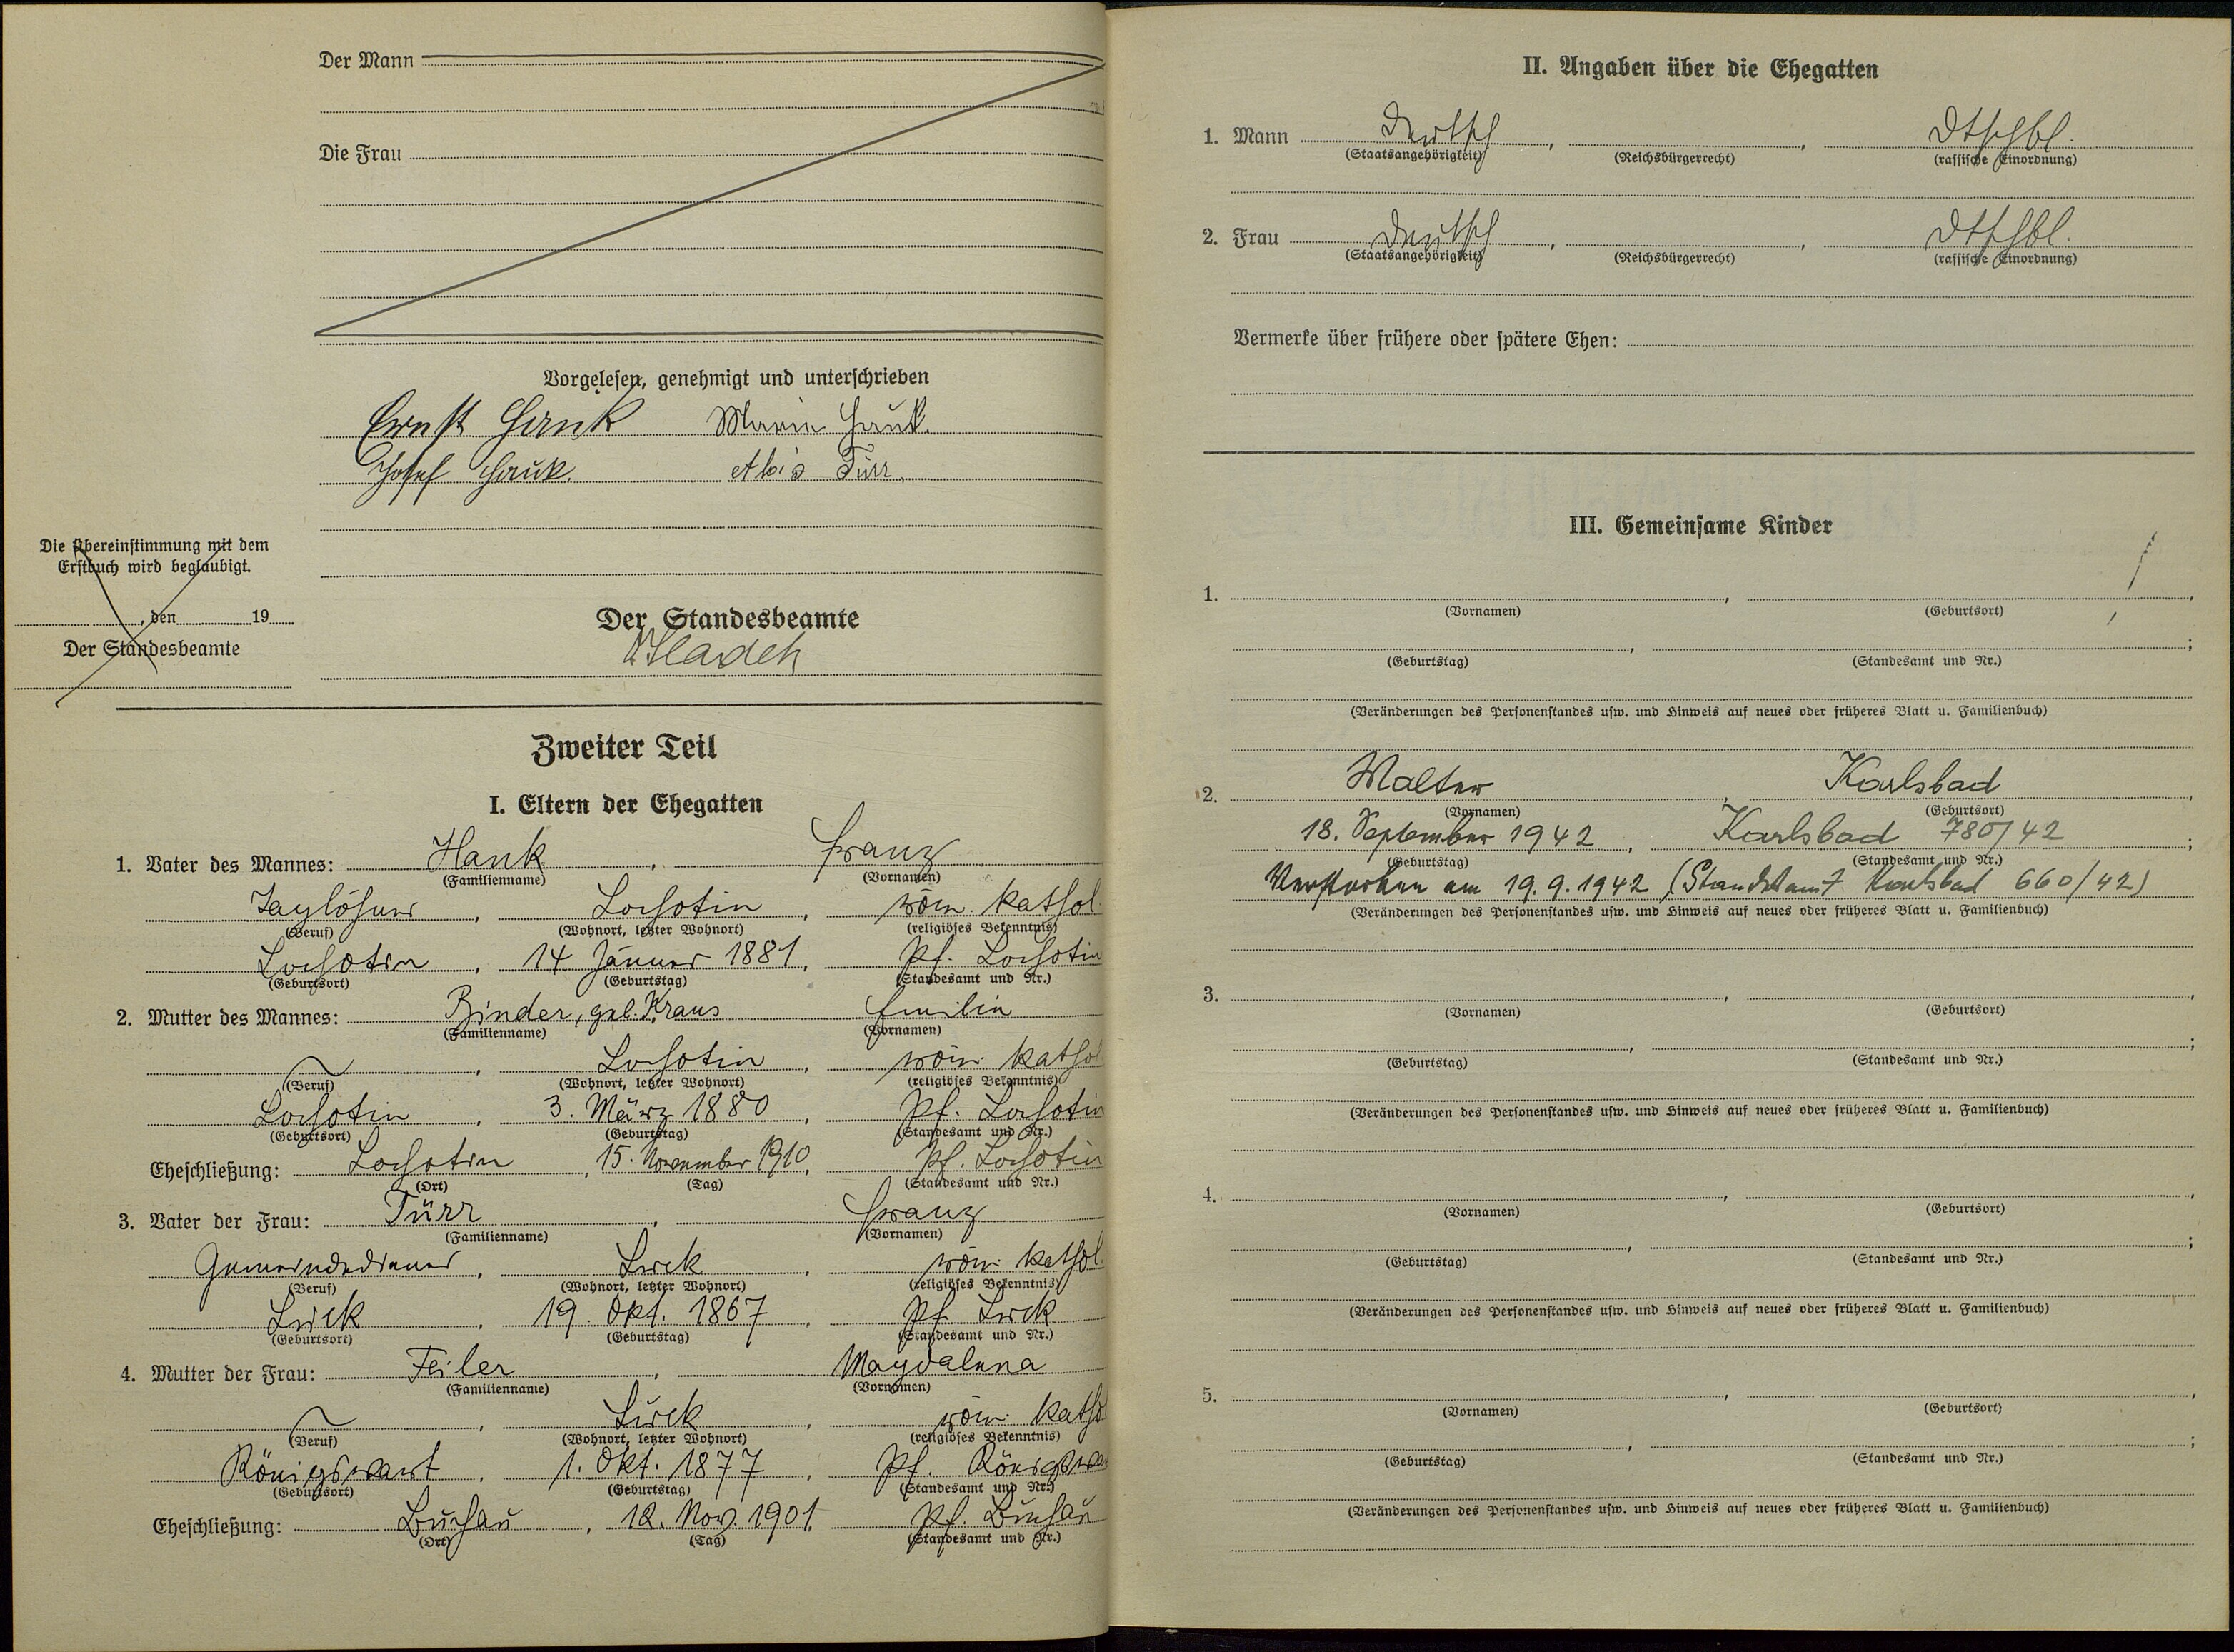 Der Mann
Die Frau
Vorgelesen, genehmigt und unterschrieben
Ernst Hank Maria Hank.
Josef Hauk. Alois Türr.
Die Übereinstimmung mit dem
Erstbuch wird beglaubigt.
, den 19
Der Standesbeamte
Der Standesbeamte
Zweiter Teil
I. Eltern der Ehegatten
1. Vater des Mannes: Hank, Franz
(Familienname) (Vornamen)
Taglöhner, Lochotin, röm. kathol
(Beruf) (Wohnort, letzter Wohnort) (religiöses Bekenntnis)
Lochotin, 14. Jänner 1881, Pf. Lochotin
(Geburtsort) (Geburtstag) (Standesamt und Nr.)
2. Mutter des Mannes: Binder, geb. Kraus Emilie
(Familienname) (Vornamen)
, Lochotin, röm. kathol
(Beruf) (Wohnort, letzter Wohnort) (religiöses Bekenntnis)
Lochotin, 3. März 1880, Pf. Lochotin
(Geburtsort) (Geburtstag) (Standesamt und Nr.)
Eheschließung: Lochotin, 15. November 1910, Pf. Lochotin
(Ort) (Tag) (Standesamt und Nr.)
3. Vater der Frau: Türr, Franz
(Familienname) (Vornamen)
Gemeindediener, Luck, röm. kathol.
(Beruf) (Wohnort, letzter Wohnort) (religiöses Bekenntnis)
Luck, 19. Okt. 1867, Pf. Luck
(Geburtsort) (Geburtstag) (Standesamt und Nr.)
4. Mutter der Frau: Feiler, Magdalena
(Familienname) (Vornamen)
, Luck, röm. kathol
(Beruf) (Wohnort, letzter Wohnort) (religiöses Bekenntnis)
Königswart, 1. Okt. 1877, Pf. Königswa
(Geburtsort) (Geburtstag) (Standesamt und Nr.)
Eheschließung: Buchau, 12. Nov. 1901, Pf. Buchau
(Ort) (Tag) (Standesamt und Nr.)
II. Angaben über die Ehegatten
1. Mann Deutsch, , Dtschbl.
(Staatsangehörigkeit) (Reichsbürgerrecht) (rassische Einordnung)
2. Frau Deutsch, , Dtschbl.
(Staatsangehörigkeit) (Reichsbürgerrecht) (rassische Einordnung)
Vermerke über frühere oder spätere Ehen:
III. Gemeinsame Kinder
1. , ,
(Vornamen) (Geburtsort)
, ;
(Geburtstag) (Standesamt und Nr.)
(Veränderungen des Personenstandes usw. und Hinweis auf neues oder früheres Blatt u. Familienbuch)
2. Walter, Karlsbad,
(Vornamen) (Geburtsort)
18. September 1942, Karlsbad 780/42;
(Geburtstag) (Standesamt und Nr.)
Verstorben am 19.9.1942 (Standesamt Karlsbad 660/42)
(Veränderungen des Personenstandes usw. und Hinweis auf neues oder früheres Blatt u. Familienbuch)
3. , ,
(Vornamen) (Geburtsort)
, ;
(Geburtstag) (Standesamt und Nr.)
(Veränderungen des Personenstandes usw. und Hinweis auf neues oder früheres Blatt u. Familienbuch)
4. , ,
(Vornamen) (Geburtsort)
, ;
(Geburtstag) (Standesamt und Nr.)
(Veränderungen des Personenstandes usw. und Hinweis auf neues oder früheres Blatt u. Familienbuch)
5. , ,
(Vornamen) (Geburtsort)
, ;
(Geburtstag) (Standesamt und Nr.)
(Veränderungen des Personenstandes usw. und Hinweis auf neues oder früheres Blatt u. Familienbuch)